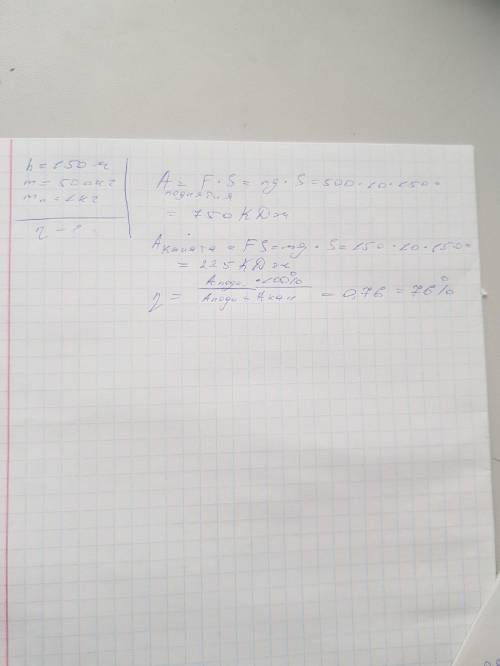 h = 150 м
m = 500 кг
mп = 1 кг
η - ?
A поднятия = F · S = mg · S = 500 · 10 · 150 =
= 750 КДж
A каната = FS = mg · S = 150 · 10 · 150 =
= 225 КДж
η = Aподн · 100% / Aподн + Aкан = 0,76 = 76%